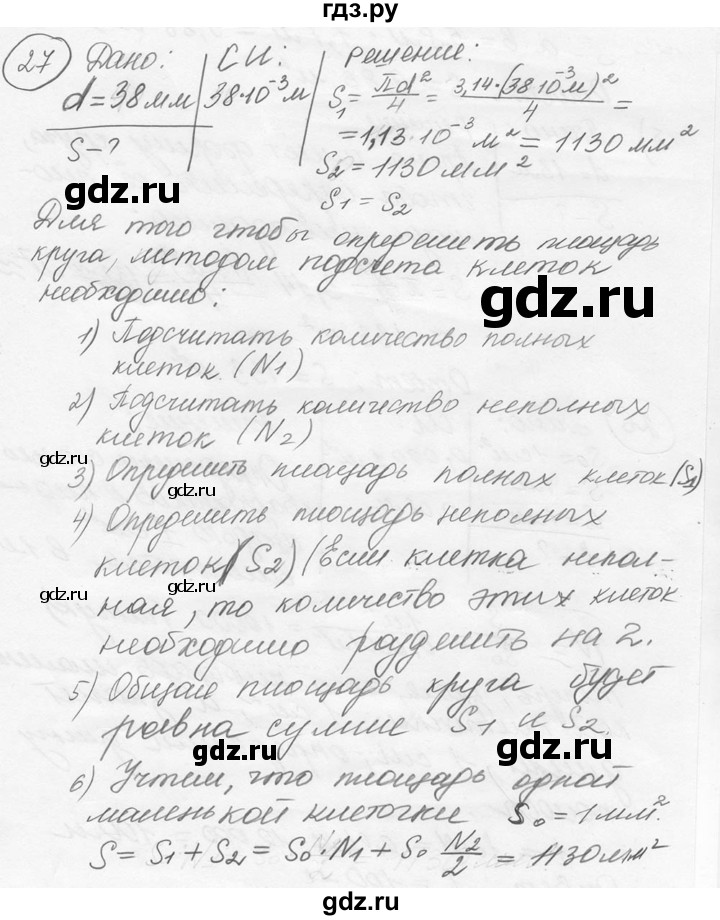 гдз.ру
27 Дано: СИ: решение:
d = 38 мм 38·10⁻³ м S₁ = πd²/4 = 3,14·(38·10⁻³м)²/4 =
= 1,13·10⁻³ м² = 1130 мм²
S-? S₂ = 1130 мм²
S₁ = S₂
gdz.ru
Для того чтобы определить площадь
круга, методом подсчета клеток
необходимо:
gdz.ru
1) Подсчитать количество полных
клеток. (N1)
2) Подсчитать количество неполных
клеток (N2)
gdz.ru
3) Определить площадь полных клеток (S1)
gdz.ru
4) Определить площадь неполных
клеток (S2) (Если клетка непол-
gdz.ru
gdz.ru
ная, то количество этих клеток
необходимо разделить на 2.
5) Общая площадь круга будет
равна сумме S1 и S2.
gdz.ru
gdz.ru
6) Учтем, что площадь одной
маленькой клеточки S₀ = 1 мм².
S = S₁ + S₂ = S₀·N₁ + S₀ N₂/2 = 1130 мм²
gdz.ru
gdz.ru